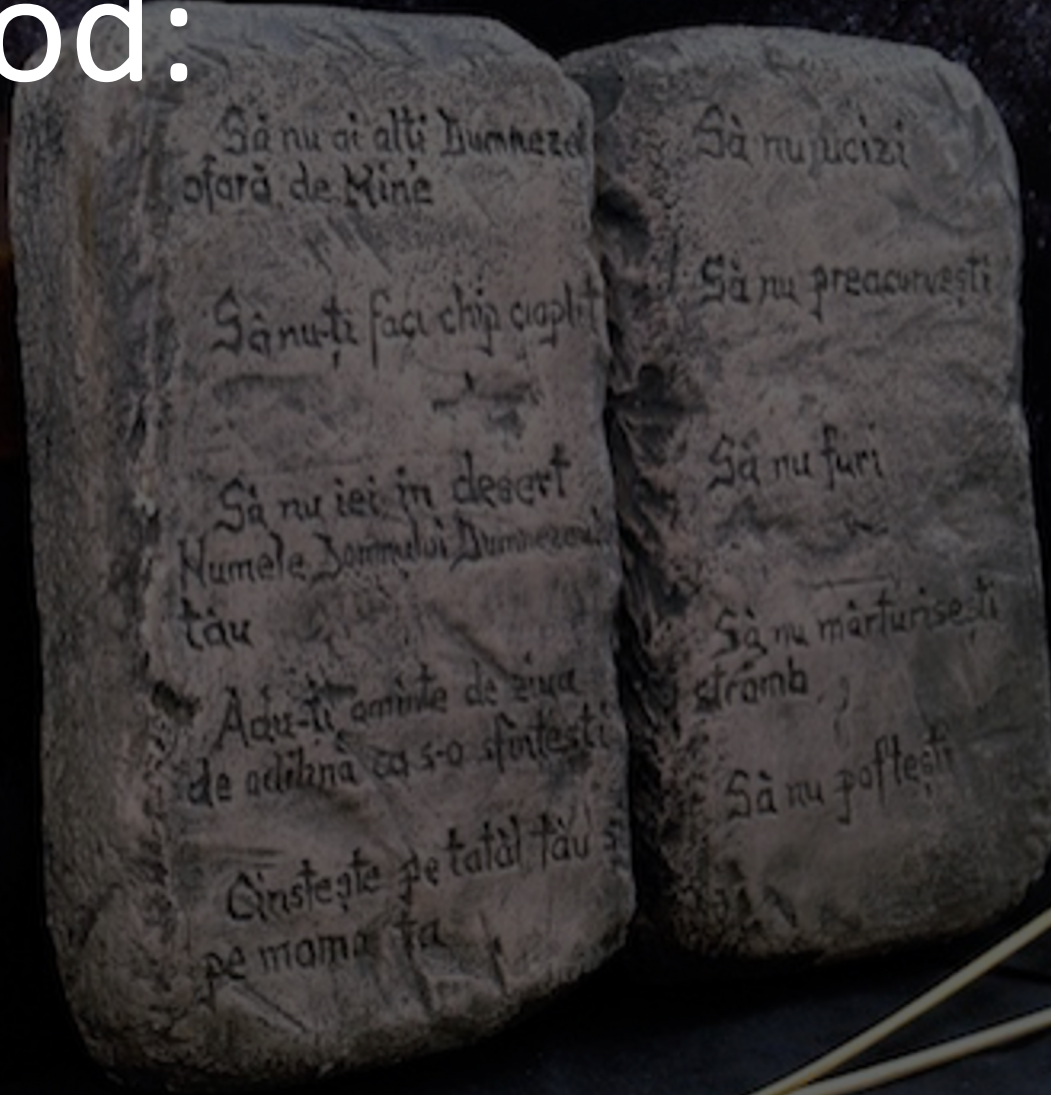 od:
Să nu ai alți Dumnezei
afară de Mine
Să nu-ți faci chip cioplit
Să nu iei in desert
Numele Domnului Dumnezeului
tău
Adu-ți aminte de ziua
de odihnă ca s-o sfintesti
Cinstește pe tatăl tău și
pe mama ta
Să nu ucizi
Să nu preacurvești
Să nu furi
Să nu mărturisești
strâmb
Să nu poftești